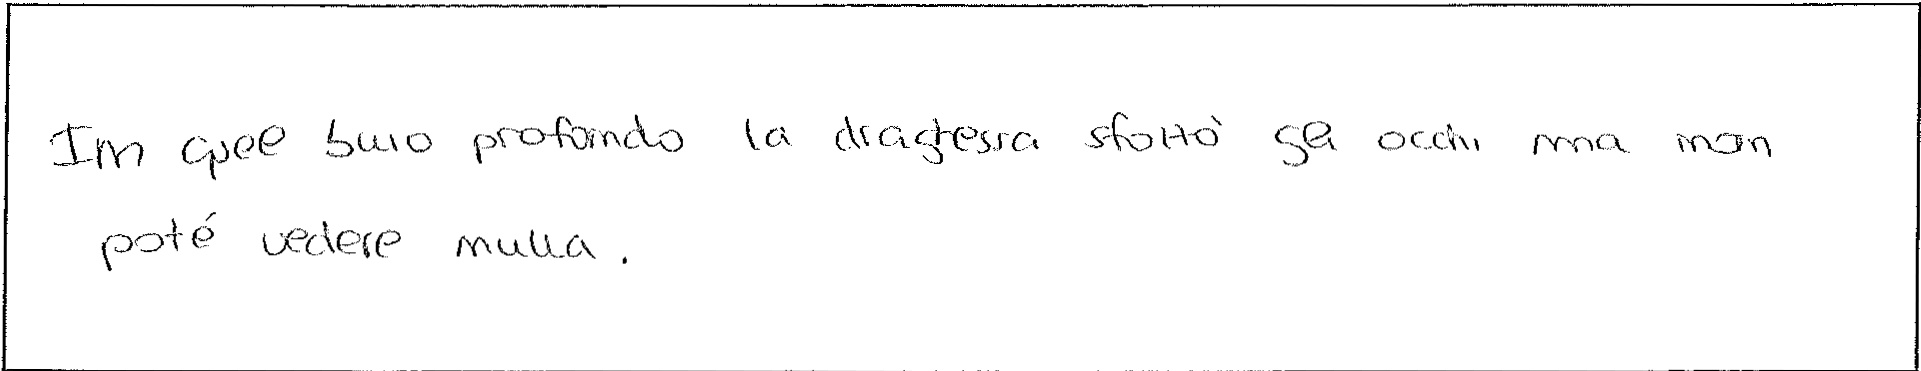 In quel buio profondo la draghessa gli occhi ma non
poté vedere nulla.